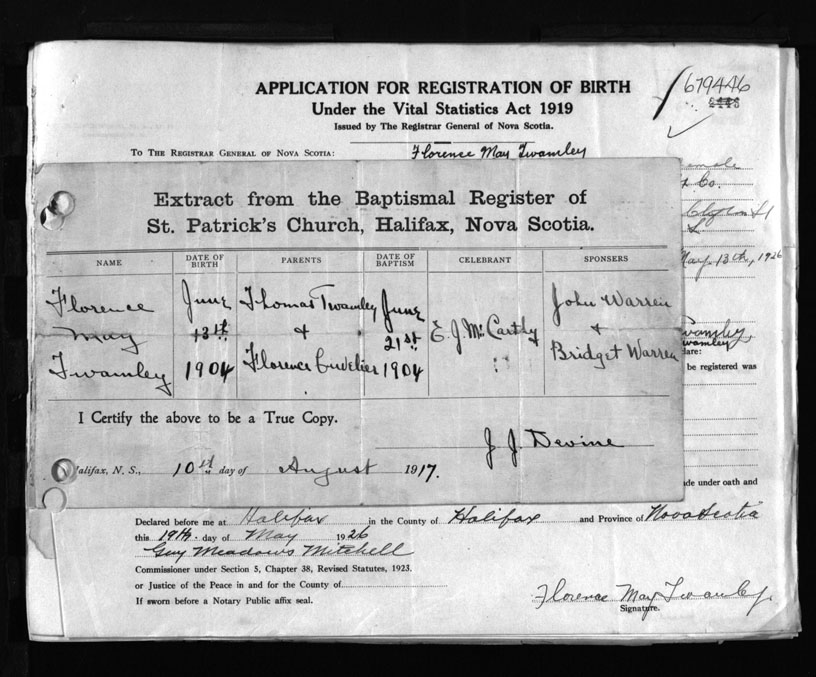 APPLICATION FOR REGISTRATION OF BIRTH
Under the Vital Statistics Act 1919
Issued by The Registrar General of Nova Scotia.
679446
TO THE REGISTRAR GENERAL OF NOVA SCOTIA:
Florence May Twamley
emale
Co.
May 13th, 1926
Extract from the Baptismal Register of
St. Patrick's Church, Halifax, Nova Scotia.
NAME DATE OF BIRTH PARENTS DATE OF BAPTISM CELEBRANT SPONSERS
Florence June Thomas Twamley June John Warren
May 13th & 21st E. J. McCarthy &
Twamley 1904 Florence Cuvelier 1904 Bridget Warren
wamley,
wamley
lare:
be registered was
I Certify the above to be a True Copy.
J. J. Devine
alifax, N. S., 10th day of August 1917.
de under oath and
Declared before me at Halifax in the County of Halifax and Province of Nova Scotia
this 19th. day of May 1926
Guy Meadows Mitchell
Commissioner under Section 5, Chapter 38, Revised Statutes, 1923.
or Justice of the Peace in and for the County of
If sworn before a Notary Public affix seal.
Florence May Twamley.
Signature.